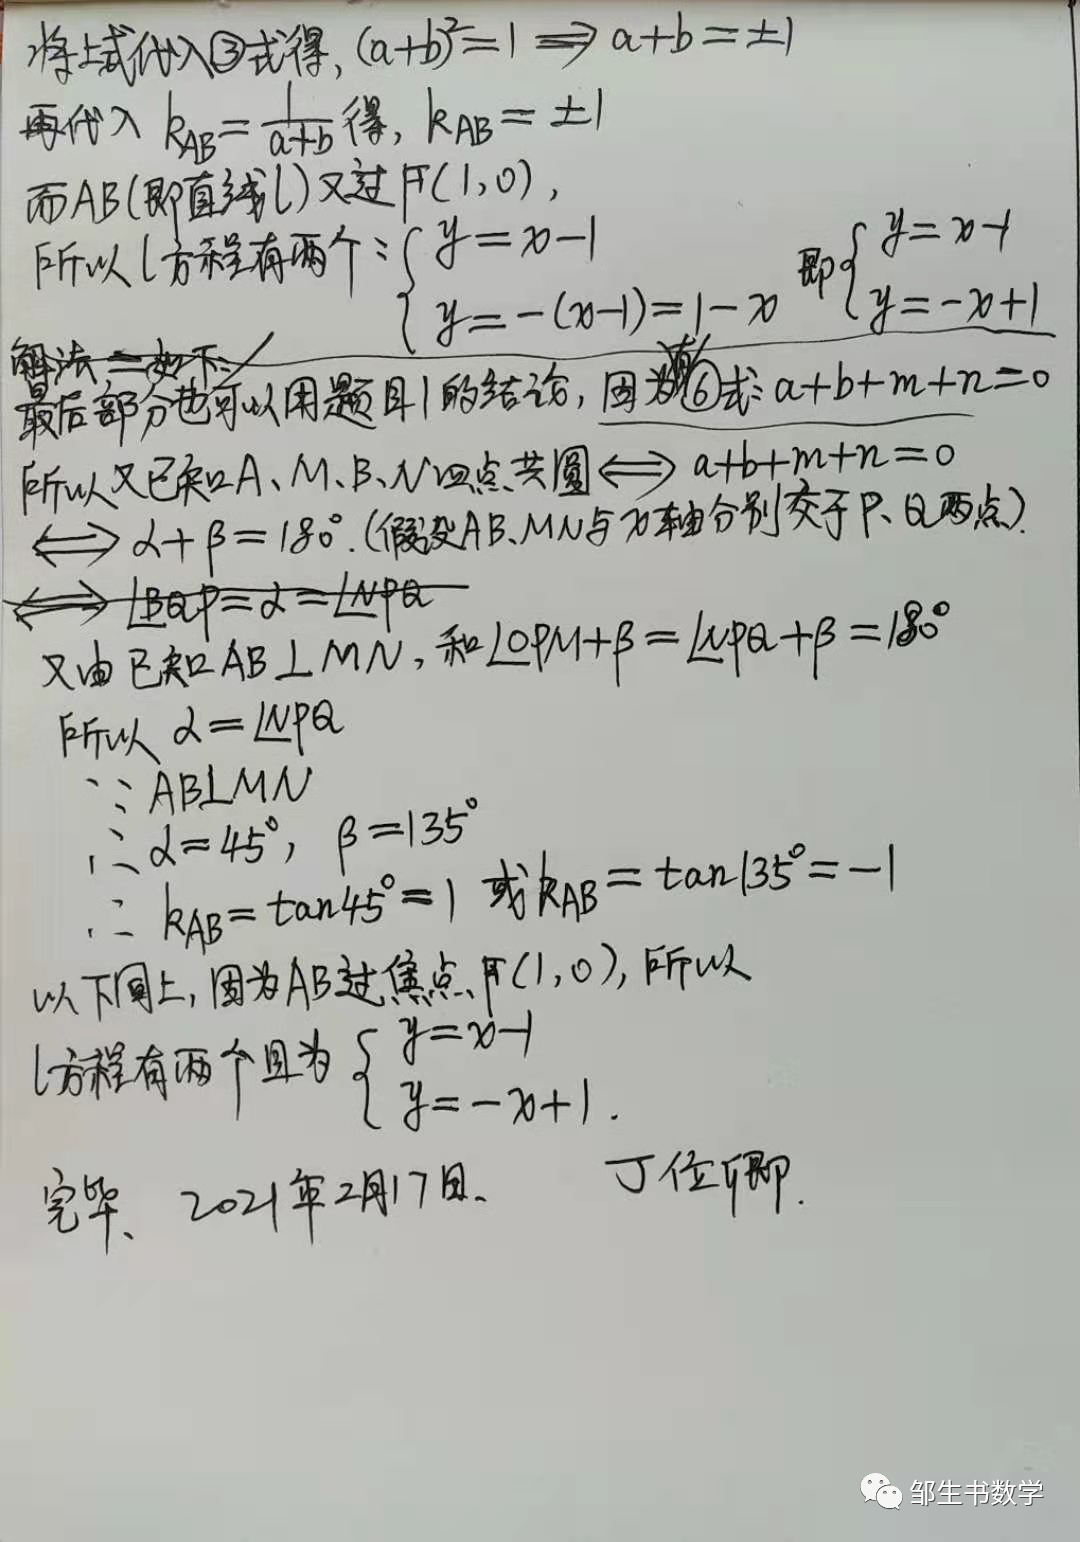 将上式代入③式得, (a+b)²=1 ⟹ a+b=±1
再代入 k_AB = 1/(a+b) 得, k_AB = ±1
而AB(即直线l)又过F(1,0),
所以l方程有两个: { y=x-1 即 { y=x-1
y=-(x-1)=1-x y=-x+1
解法二如下:
最后部分也可以用题目1的结论, 因为有⑥式: a+b+m+n=0
所以又已知A、M、B、N四点共圆 ⟺ a+b+m+n=0
⟺ α+β=180°.(假设AB、MN与x轴分别交于P、Q两点).
⟺ ∠BQP=α=∠NPQ
又由已知AB⊥MN, 和∠OPM+β=∠NPQ+β=180°
所以 α=∠NPQ
∵ AB⊥MN
∴ α=45°, β=135°
∴ k_AB=tan45°=1 或k_AB=tan135°=-1
以下同上, 因为AB过焦点F(1,0), 所以
l方程有两个且为 { y=x-1
y=-x+1.
完毕、 2021年2月17日、 丁位卿.
邹生书数学